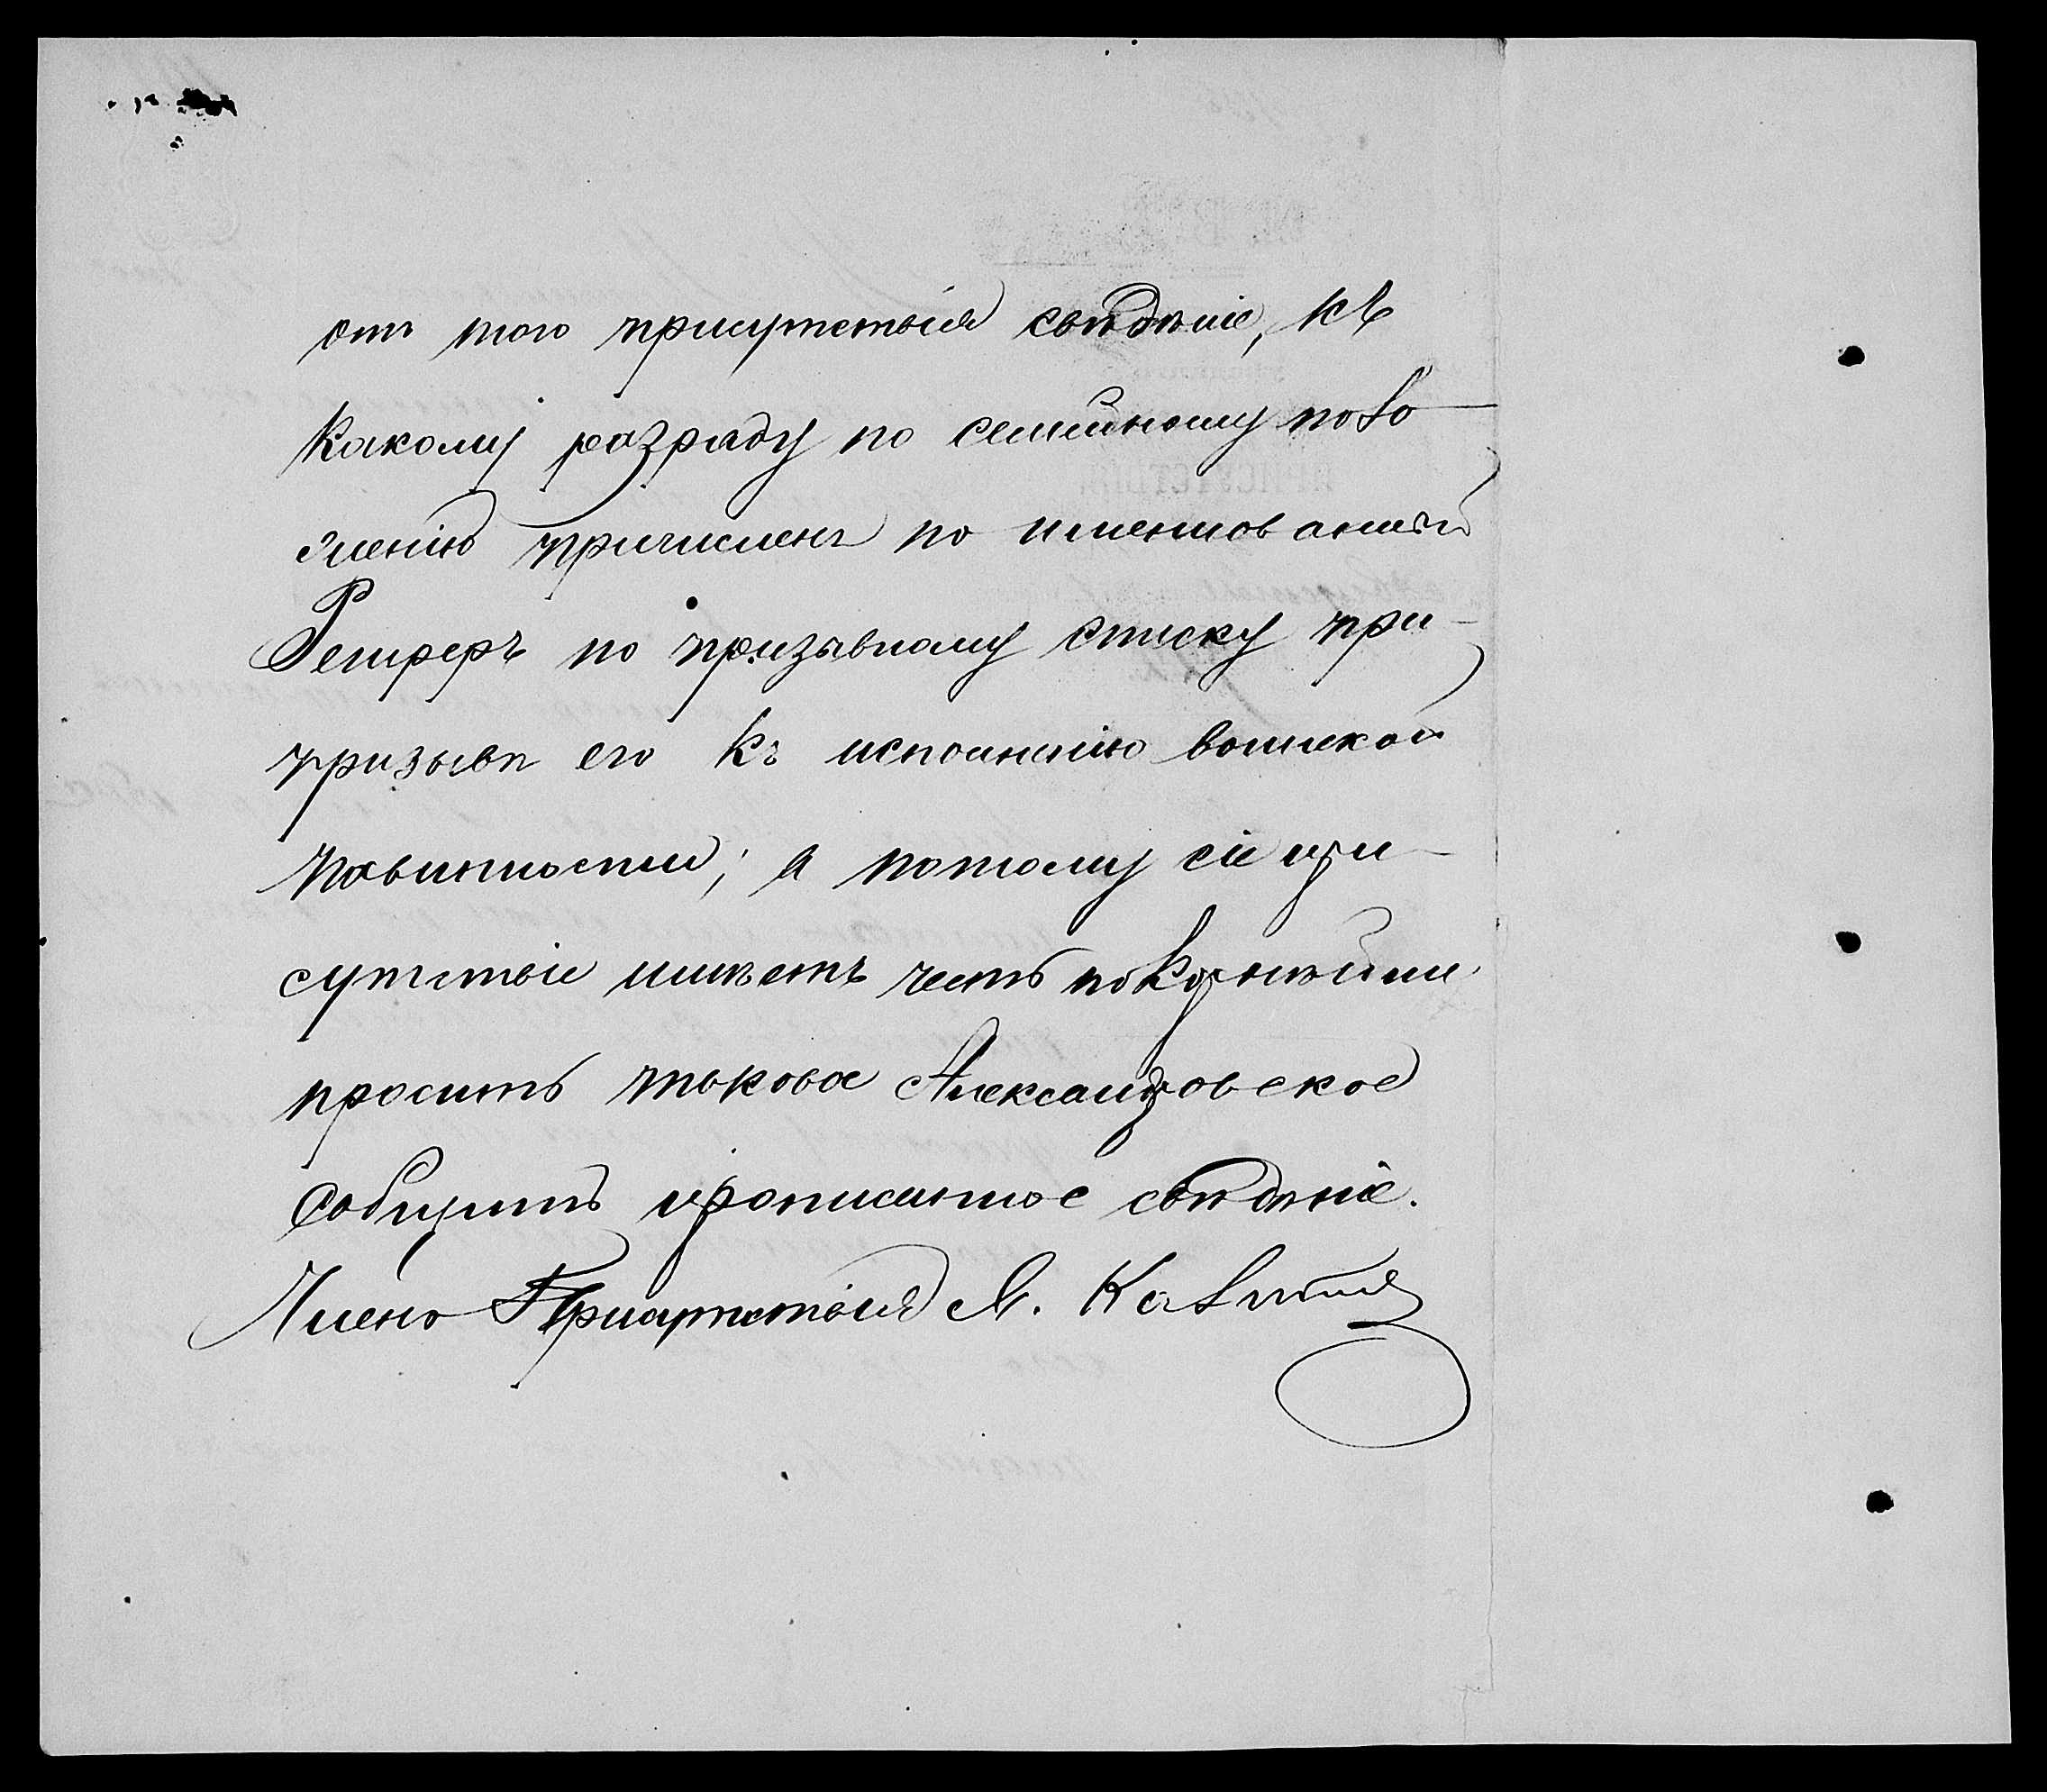 отъ того присутствія свѣдѣніе, къ
какому разряду по семейному поло-
женію причисленъ по именованный
Репреръ по призывному списку при
призывѣ его къ исполненію воинской
повинности; а потому сіе при-
сутствіе имѣетъ честь покорнѣйше
просить таковое Александровское
сообщить прописанное свѣдѣніе.
Членъ Присутствія М.